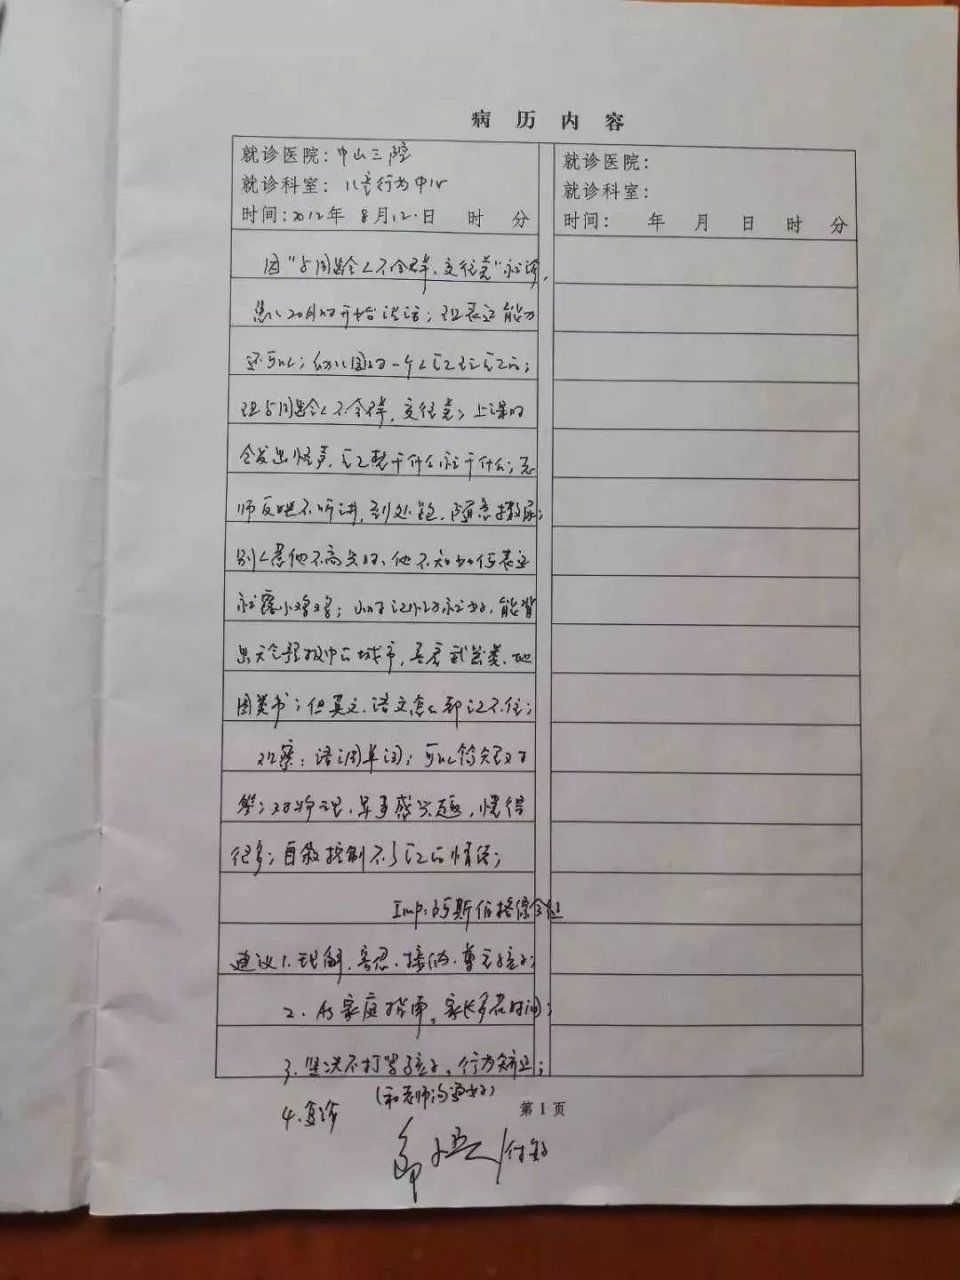 病历内容
就诊医院：中山三院
就诊科室：儿童行为中心
时间：2012年 8月12日 时 分
就诊医院：
就诊科室：
时间： 年 月 日 时 分
因"与同龄人不合群，交往差"就诊，
患儿20月时开始说话；现表达能力
还可以；幼儿园时一个人自玩自的；
现与同龄人不合群，交往差，上课时
会发出怪声，自己想干什么就干什么；老
师反映不听讲，到处跑，随意撒尿；
别人惹他不高兴时，他不知如何表达
就露小鸡鸡；小时记忆力就好，能背
出天气预报中的城市，喜看武器类、地
图类书；但英文、语文怎么都记不住；
观察：语调单调；可以简短对
答；对物理、军事感兴趣，懂得
很多；自叙控制不了自己的情绪；
Imp：阿斯伯格综合征
建议1. 理解、宽恕、接纳、尊重孩子；
2. 家庭指导，家长多花时间；
3. 坚决不打骂孩子，行为矫正；
（和老师沟通好）
4. 复诊
第1页